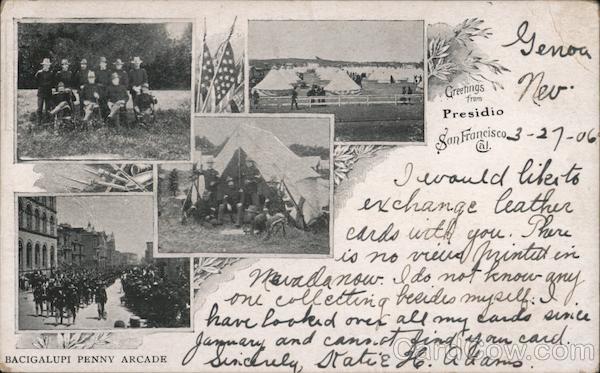 Greetings
from
Presidio
San Francisco
Cal.
BACIGALUPI PENNY ARCADE
Genoa
Nev.
3-27-06
I would like to
exchange leather
cards with you. There
is no views printed in
Nevada now. I do not know any
one collecting besides myself. I
have looked over all my cards since
January and cannot find your card.
Sincerely, Katie H. Adams.
CardCow.com